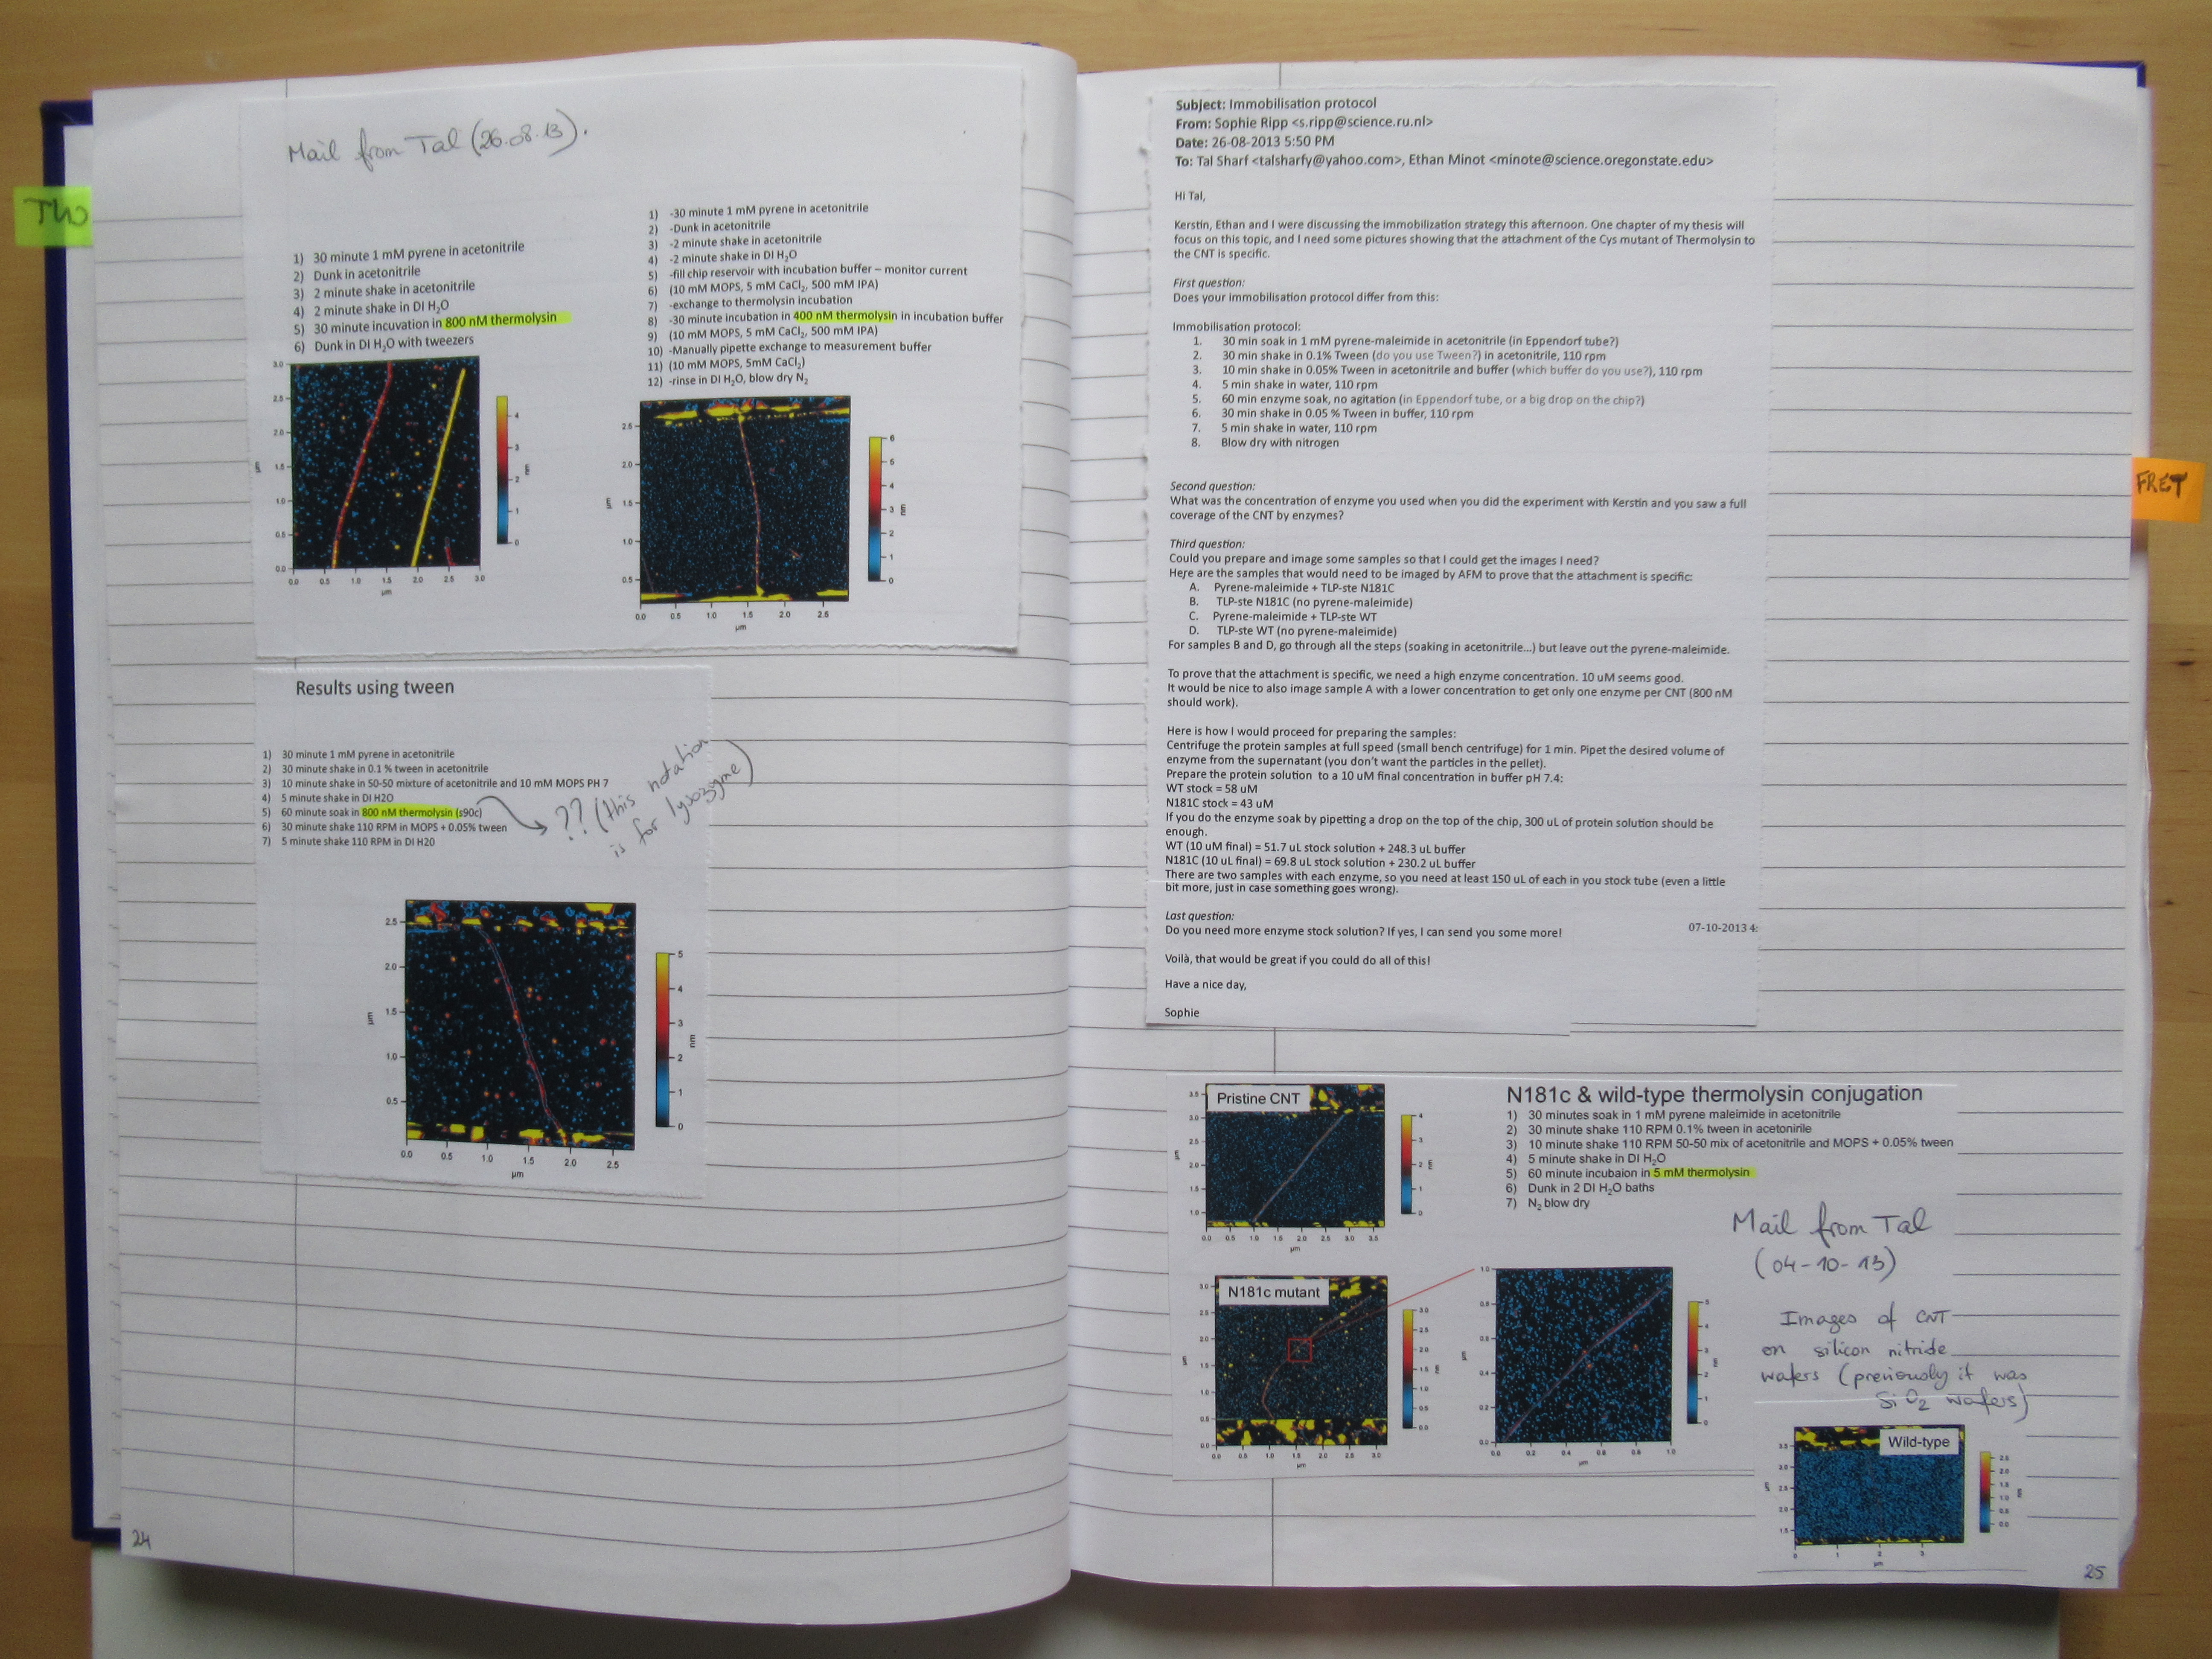 Mail from Tal (26.08.13).
TW
1) 30 minute 1 mM pyrene in acetonitrile
2) Dunk in acetonitrile
3) 2 minute shake in acetonitrile
4) 2 minute shake in DI H₂O
5) 30 minute incuvation in 800 nM thermolysin
6) Dunk in DI H₂O with tweezers
1) -30 minute 1 mM pyrene in acetonitrile
2) -Dunk in acetonitrile
3) -2 minute shake in acetonitrile
4) -2 minute shake in DI H₂O
5) -fill chip reservoir with incubation buffer – monitor current
6) (10 mM MOPS, 5 mM CaCl₂, 500 mM IPA)
7) -exchange to thermolysin incubation
8) -30 minute incubation in 400 nM thermolysin in incubation buffer
9) (10 mM MOPS, 5 mM CaCl₂, 500 mM IPA)
10) -Manually pipette exchange to measurement buffer
11) (10 mM MOPS, 5mM CaCl₂)
12) -rinse in DI H₂O, blow dry N₂
3.0
2.5
2.0
1.5
1.0
0.5
0.0
µm
0.0 0.5 1.0 1.5 2.0 2.5 3.0
µm
4
3
2
1
0
nm
2.5
2.0
1.5
1.0
0.5
µm
0.0 0.5 1.0 1.5 2.0 2.5
µm
6
5
4
3
2
1
0
nm
Results using tween
1) 30 minute 1 mM pyrene in acetonitrile
2) 30 minute shake in 0.1 % tween in acetonitrile
3) 10 minute shake in 50-50 mixture of acetonitrile and 10 mM MOPS PH 7
4) 5 minute shake in DI H2O
5) 60 minute soak in 800 nM thermolysin (s90c)
6) 30 minute shake 110 RPM in MOPS + 0.05% tween
7) 5 minute shake 110 RPM in DI H20
?? (this notation
is for lysozyme)
2.5
2.0
1.5
1.0
0.5
µm
0.0 0.5 1.0 1.5 2.0 2.5
µm
5
4
3
2
1
0
nm
24
Subject: Immobilisation protocol
From: Sophie Ripp <s.ripp@science.ru.nl>
Date: 26-08-2013 5:50 PM
To: Tal Sharf <talsharfy@yahoo.com>, Ethan Minot <minote@science.oregonstate.edu>
Hi Tal,
Kerstin, Ethan and I were discussing the immobilization strategy this afternoon. One chapter of my thesis will
focus on this topic, and I need some pictures showing that the attachment of the Cys mutant of Thermolysin to
the CNT is specific.
First question:
Does your immobilisation protocol differ from this:
Immobilisation protocol:
1. 30 min soak in 1 mM pyrene-maleimide in acetonitrile (in Eppendorf tube?)
2. 30 min shake in 0.1% Tween (do you use Tween?) in acetonitrile, 110 rpm
3. 10 min shake in 0.05% Tween in acetonitrile and buffer (which buffer do you use?), 110 rpm
4. 5 min shake in water, 110 rpm
5. 60 min enzyme soak, no agitation (in Eppendorf tube, or a big drop on the chip?)
6. 30 min shake in 0.05 % Tween in buffer, 110 rpm
7. 5 min shake in water, 110 rpm
8. Blow dry with nitrogen
FRET
Second question:
What was the concentration of enzyme you used when you did the experiment with Kerstin and you saw a full
coverage of the CNT by enzymes?
Third question:
Could you prepare and image some samples so that I could get the images I need?
Here are the samples that would need to be imaged by AFM to prove that the attachment is specific:
A. Pyrene-maleimide + TLP-ste N181C
B. TLP-ste N181C (no pyrene-maleimide)
C. Pyrene-maleimide + TLP-ste WT
D. TLP-ste WT (no pyrene-maleimide)
For samples B and D, go through all the steps (soaking in acetonitrile...) but leave out the pyrene-maleimide.
To prove that the attachment is specific, we need a high enzyme concentration. 10 uM seems good.
It would be nice to also image sample A with a lower concentration to get only one enzyme per CNT (800 nM
should work).
Here is how I would proceed for preparing the samples:
Centrifuge the protein samples at full speed (small bench centrifuge) for 1 min. Pipet the desired volume of
enzyme from the supernatant (you don't want the particles in the pellet).
Prepare the protein solution to a 10 uM final concentration in buffer pH 7.4:
WT stock = 58 uM
N181C stock = 43 uM
If you do the enzyme soak by pipetting a drop on the top of the chip, 300 uL of protein solution should be
enough.
WT (10 uM final) = 51.7 uL stock solution + 248.3 uL buffer
N181C (10 uL final) = 69.8 uL stock solution + 230.2 uL buffer
There are two samples with each enzyme, so you need at least 150 uL of each in you stock tube (even a little
bit more, just in case something goes wrong).
Last question:
Do you need more enzyme stock solution? If yes, I can send you some more!
07-10-2013 4:
Voilà, that would be great if you could do all of this!
Have a nice day,
Sophie
Pristine CNT
3.5
3.0
2.5
2.0
1.5
1.0
µm
0.0 0.5 1.0 1.5 2.0 2.5 3.0 3.5
µm
4
3
2
1
0
nm
N181c & wild-type thermolysin conjugation
1) 30 minutes soak in 1 mM pyrene maleimide in acetonitrile
2) 30 minute shake 110 RPM 0.1% tween in acetonirile
3) 10 minute shake 110 RPM 50-50 mix of acetonitrile and MOPS + 0.05% tween
4) 5 minute shake in DI H₂O
5) 60 minute incubaion in 5 mM thermolysin
6) Dunk in 2 DI H₂O baths
7) N₂ blow dry
Mail from Tal
(04-10-13)
Images of CNT
on silicon nitride
wafers (previously it was
SiO₂ wafers)
N181c mutant
3.0
2.5
2.0
1.5
1.0
0.5
0.0
µm
0.0 0.5 1.0 1.5 2.0 2.5 3.0
µm
3.0
2.5
2.0
1.5
1.0
0.5
0.0
nm
1.0
0.8
0.6
0.4
0.2
0.0
µm
0.0 0.2 0.4 0.6 0.8 1.0
µm
5
4
3
2
1
0
nm
Wild-type
3.5
3.0
2.5
2.0
1.5
µm
0 1 2 3
µm
2.5
2.0
1.5
1.0
0.5
0.0
nm
25